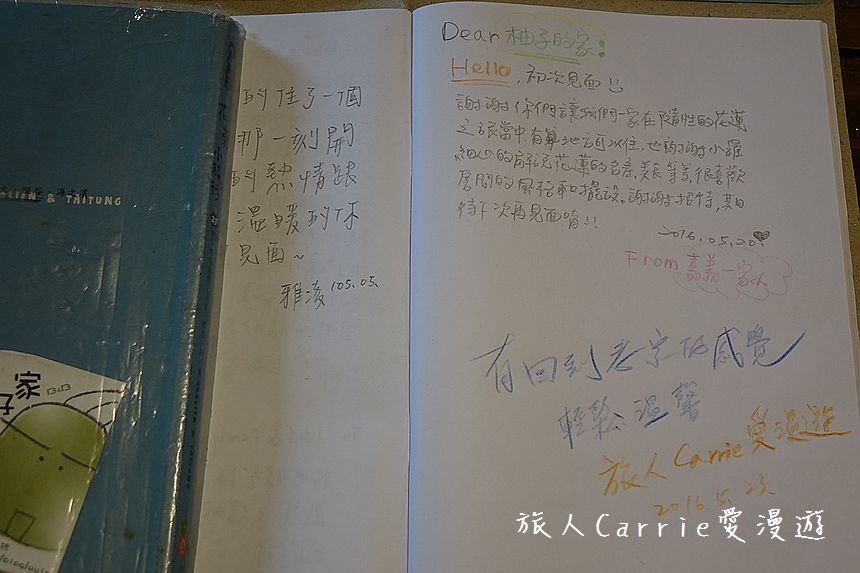 LIEN & TAITUNG
家
B&B
子
的住了一個
那一刻開
的熱情款
溫暖的休
見面~
雅淩 105.05.
Dear 柚子的家:
Hello, 初次見面
謝謝你們讓我們一家在隨性的花蓮
之旅當中有算地方可以住, 也謝謝小羅
細心的解說花蓮的名產、美食等等, 很喜歡
房間的風格和擺設。謝謝招待, 期
待下次再見面唷!!
2016.05.20.
From 嘉義一家人
有回到老家的感覺
輕鬆溫馨
旅人Carrie愛漫遊
2016.5.23.
旅人Carrie愛漫遊